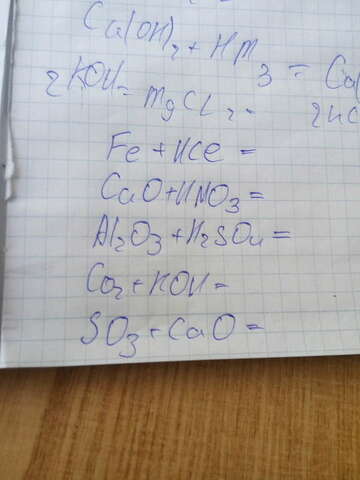 Ca(OH)₂ + HM
3 = Ca(
2KOH = MgCl₂
Fe + HCl =
CaO + HNO₃ =
Al₂O₃ + H₂SO₄ =
CO₂ + KOH =
SO₃ + CaO =